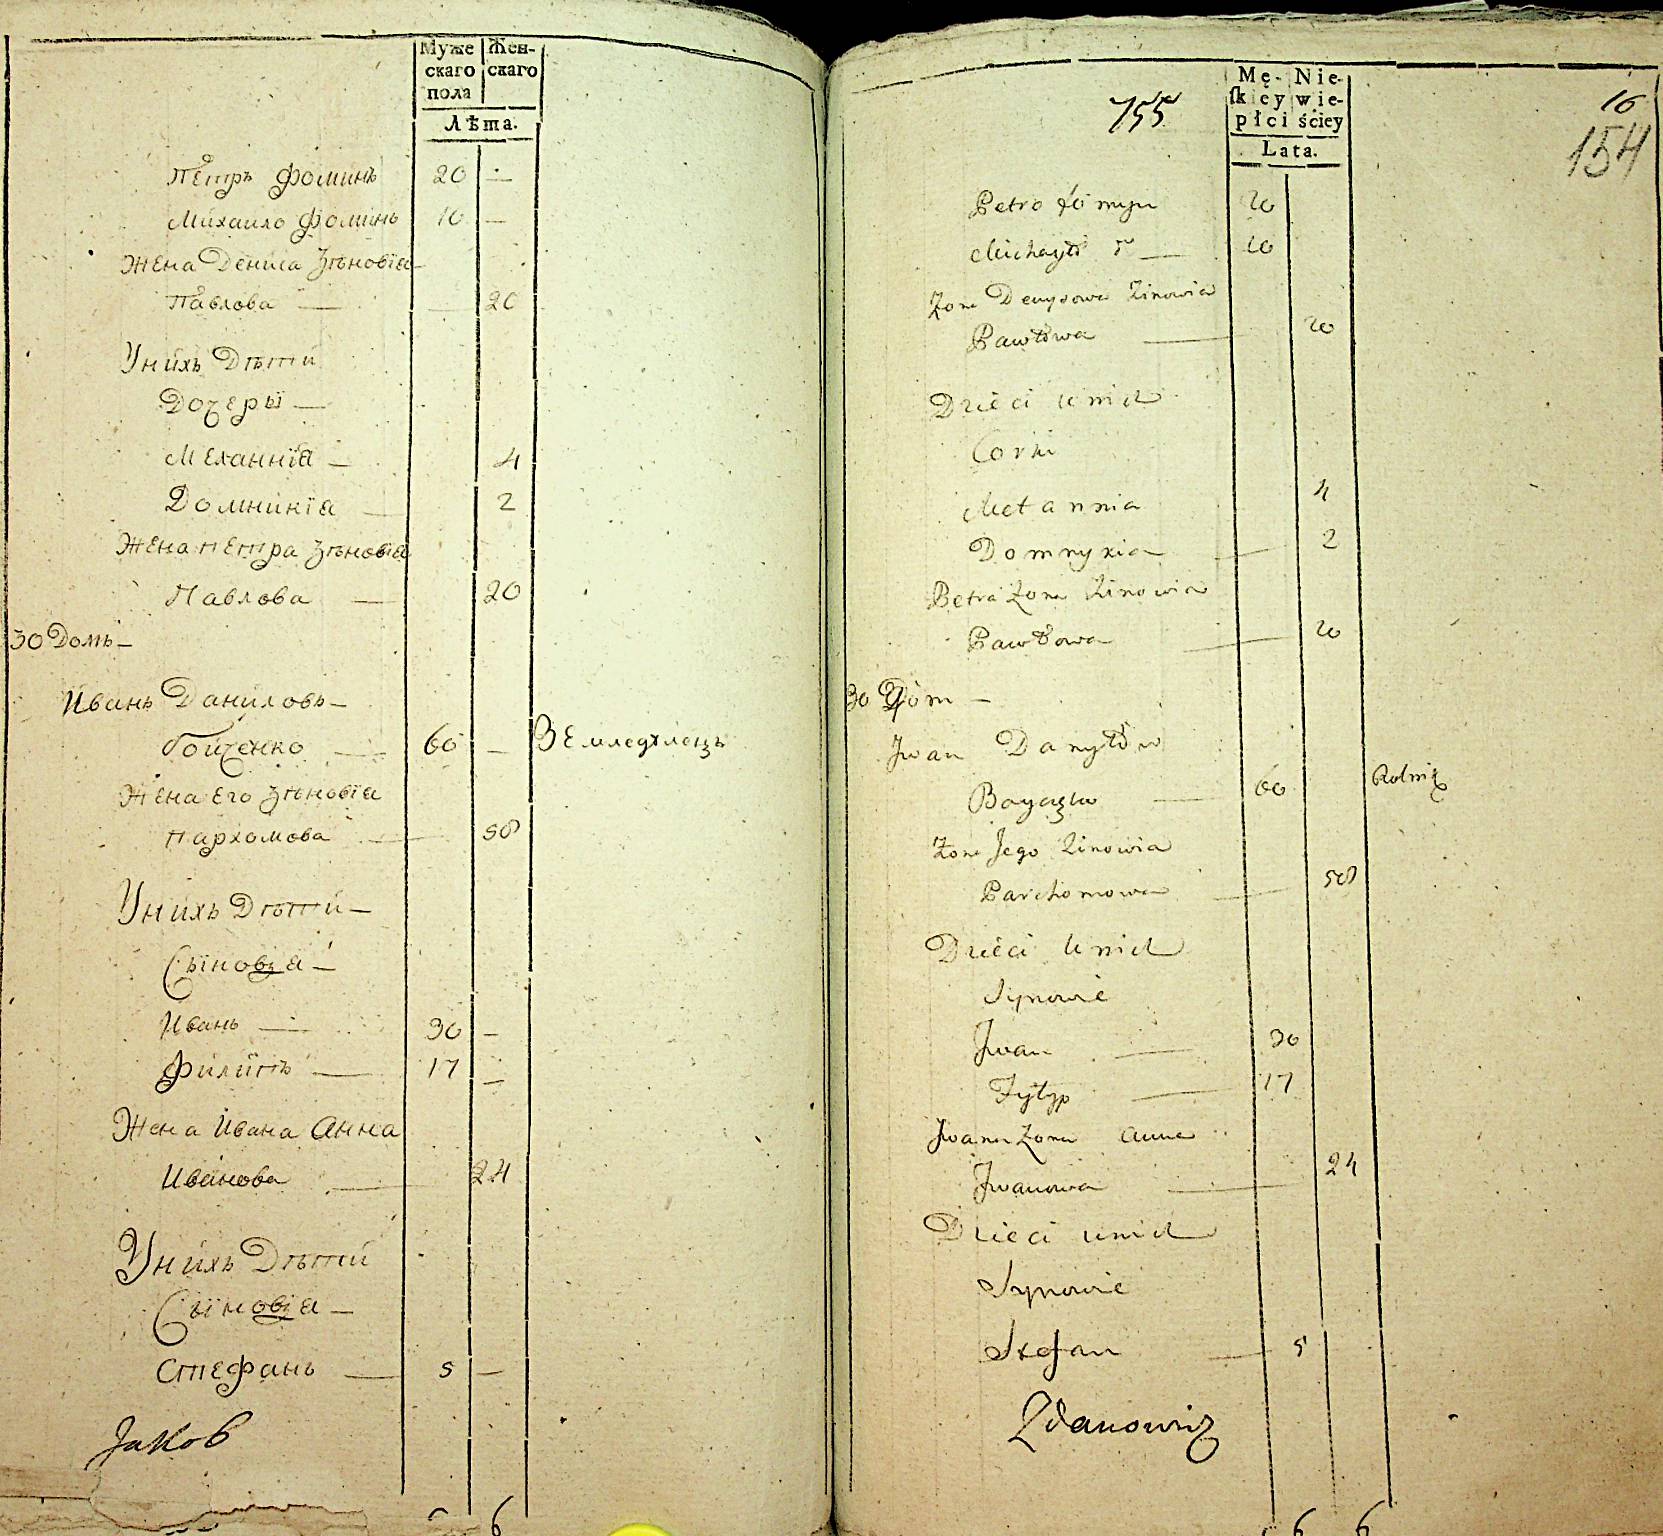 Муже Жен-
скаго скаго
пола
Лѣта.
Пётръ Фоминъ 20 —
Михаило Фоминъ 10 —
Жена Дениса Зѣновіа
Павлова — 20
Унихъ Дѣтти
Дочеры —
Меланніа — 4
Домникіа — 2
Жена Петра Зѣновіа
Павлова — 20
30 Домъ —
Иванъ Даниловъ —
60 — Земледѣлецъ
Жена Его Зѣновіа
Пархомова — 50
Унихъ Дѣтти —
Сыновіа —
Иванъ — 30 —
Филиппъ — 17 —
Жена Ивана Анна
Иванова — 24
Унихъ Дѣтти
Сыновіа —
Стефанъ — 5 —
Яков
6
755
16
154
Mę- Nie-
ſkiey wie-
płci ściey
Lata.
Petro Fomyn 20
Michayło 10
Zona Denysowa Zinowia
Pawłowa — 20
Dzieci unich
Corki
Melannia 4
Domnykia — 2
Petra Zona Zinowia
Pawłowa — 20
30 Dom —
Iwan Danyłow
— 60 Rolnik
Zona Jego Zinowia
Parchomowa — 50
Dzieci unich
Synowie
Iwan — 30
Fylyp — 17
Iwana Zona Anna
Iwanowa — 24
Dzieci unich
Synowie
Stefan — 5
Zdanowicz
6 6